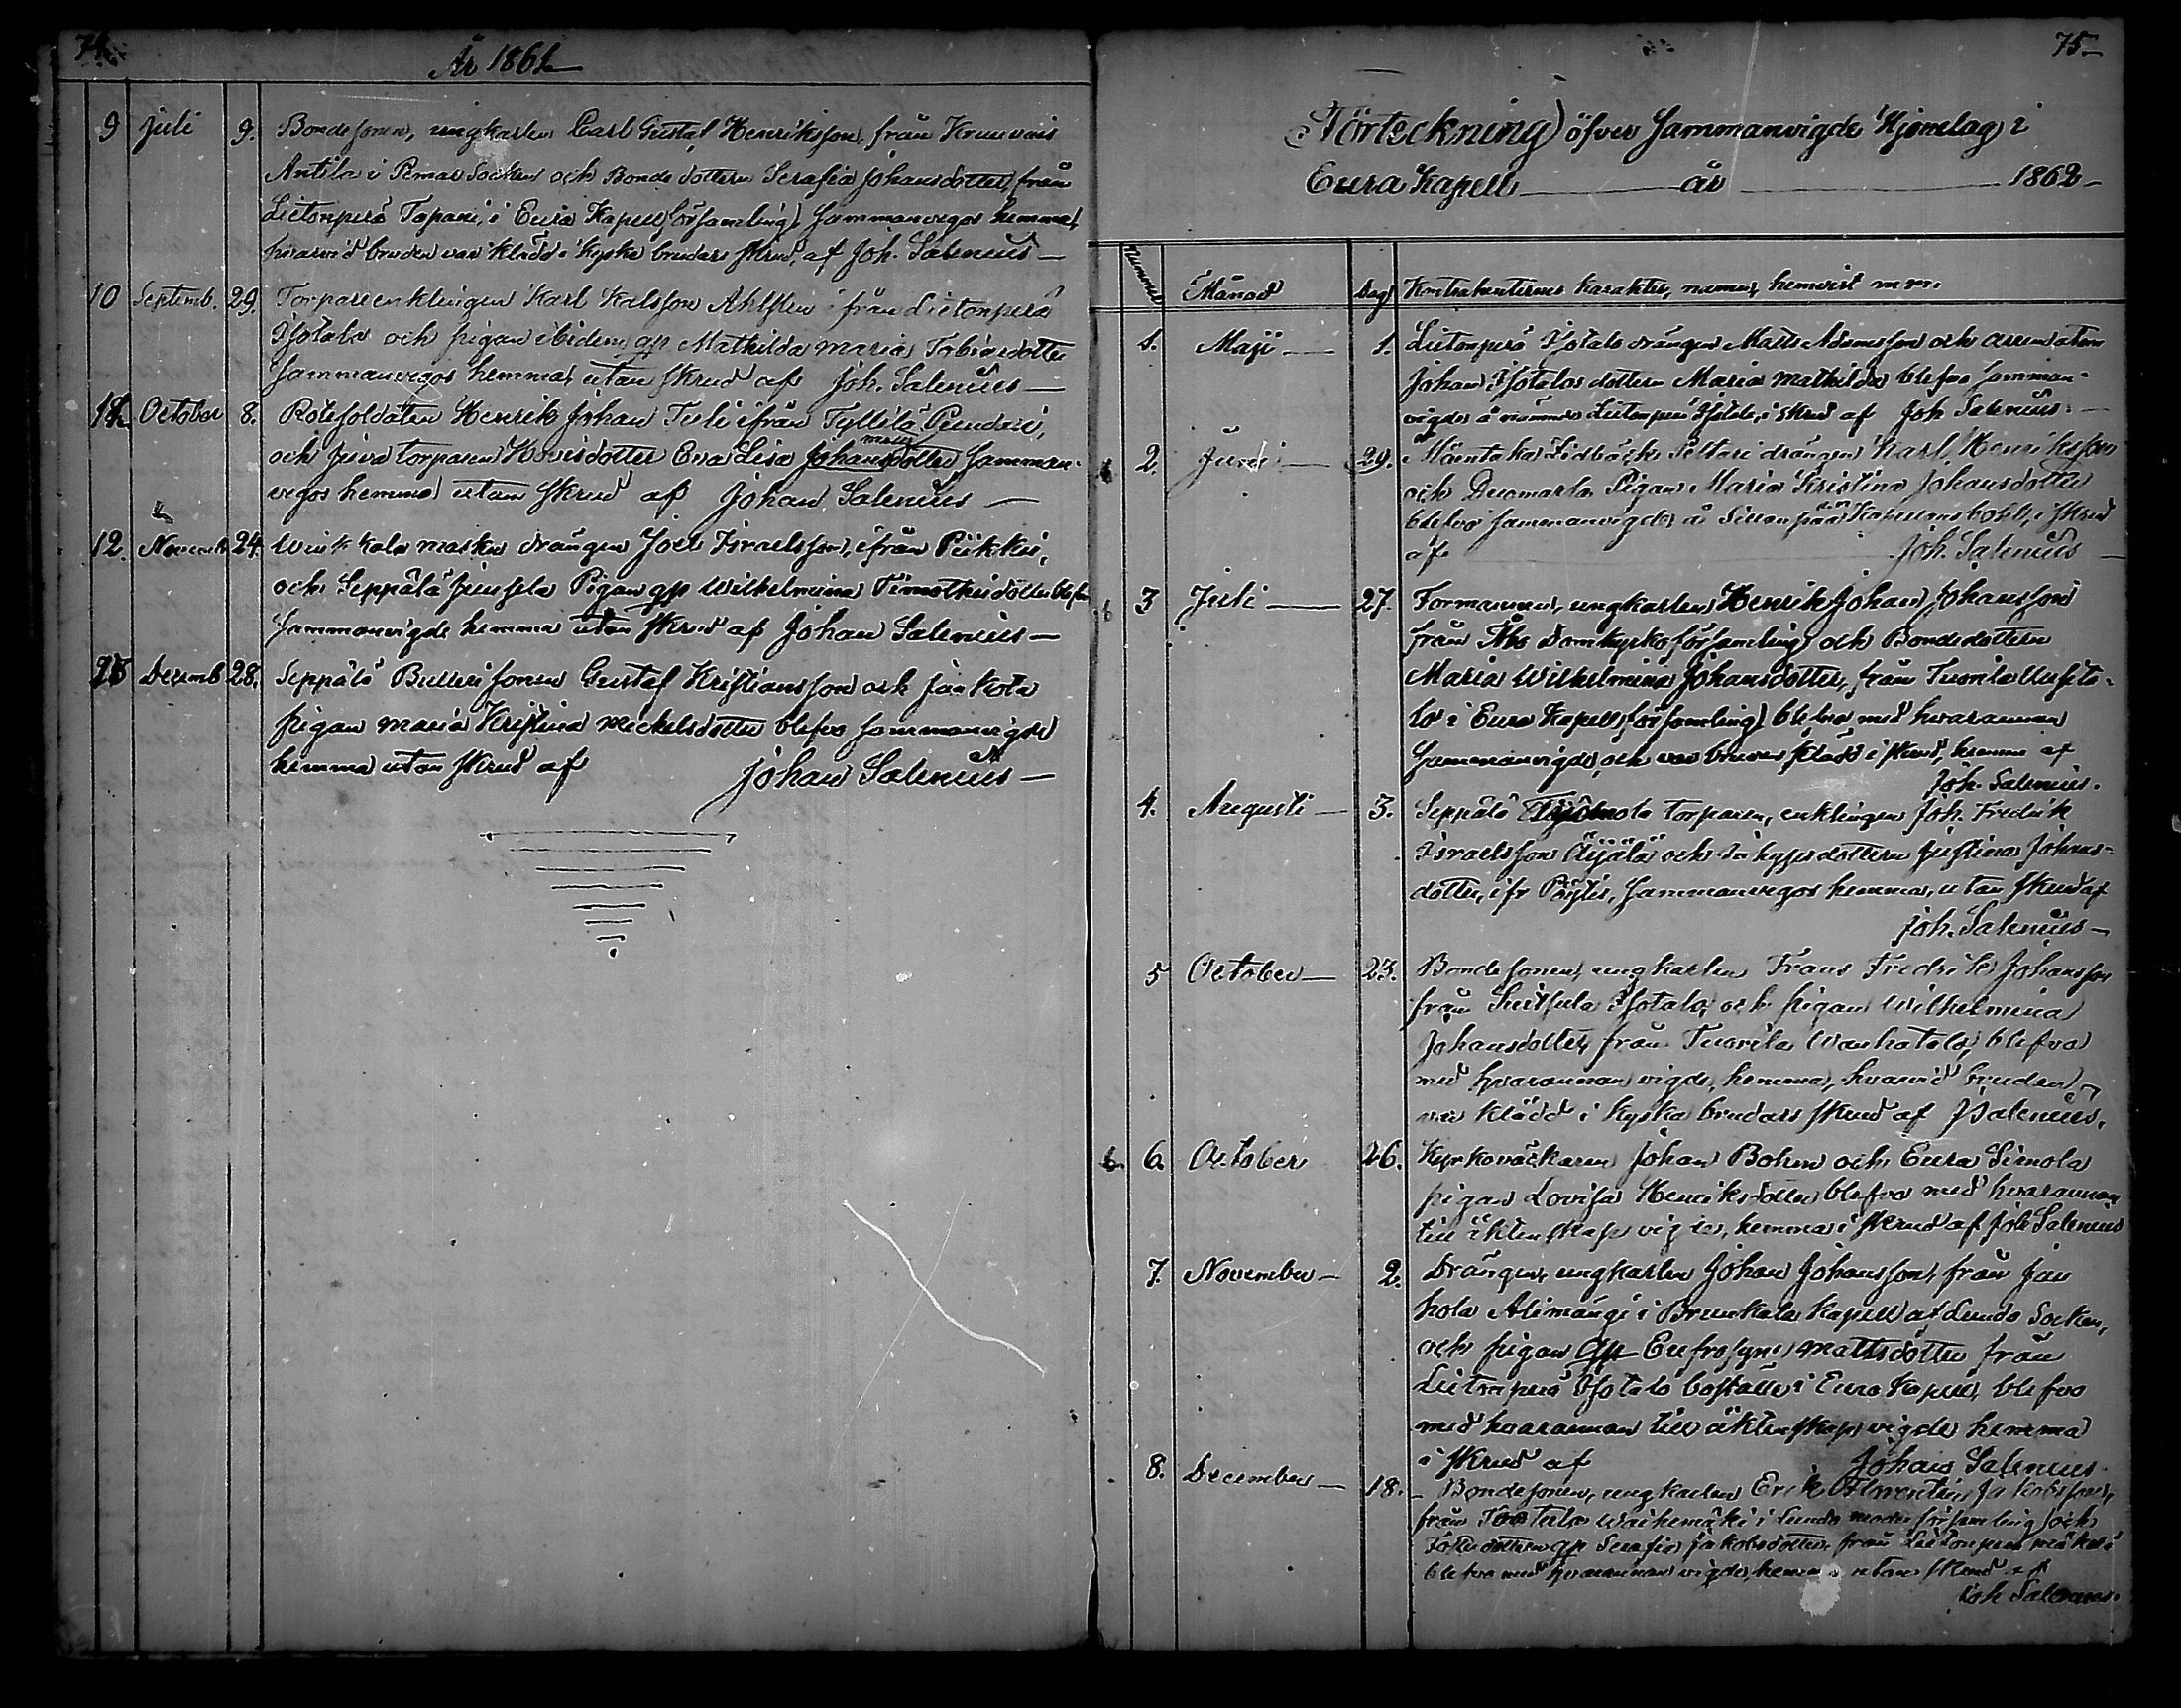 74.
År 1861
9 Juli 9. Bondesonen, ungkarlen Carl Gustaf Henriksson från
Antila i Pemar Socken och Bonde dottern Serafia Johansdotter, från
Lietonperä Tapani, i Eura Kapellförsamling, sammanvigos hemma,
hvarvid bruden var klädd i kyska brudars skrud, af Joh. Salenius —
10 Septemb. 29. Torpareenklingen Karl Kalsson Ahlsten ifrån Lietonperä
Isotalo och pigan ibidem Mathilda Maria Tobiasdotter
sammanvigos hemma, utan skrud af Joh. Salenius —
11 October 8. Rotesoldaten Henrik Johan Tuli ifrån Tyllilä
och torparen dotter Eva Lisa Johansdotter samman-
vigos hemma utan skrud af Johan Salenius —
12. Novemb 24. drängen Joel Israelsson, ifrån Piikkis,
och Seppälä Junsela Pigan Wilhelmina Timotheidotter blefvo
sammanvigde hemma utan skrud af Johan Salenius —
13 Decemb 28. Seppälä sonen Gustaf Kristiansson och
pigan Maria Kristina Mickelsdotter blefvo sammanvigde
hemma utan skrud af Johan Salenius —
75
Förteckning öfver Sammanvigde Hjonelag i
Eura Kapell — år — 1862
Nummer Månad Dag Kontrahenternes karakter, namn, hemvist m m.
1. Maji — 1. Lietonperä Isotalo drängen Matts Adamsson och arrendatorn
Johan Isotalos dottern Maria Mathilda blefvo samman-
vigde å Lietonperä Isotalo, i skrud af Joh Salenius —
2. Juni — 29. drängen Karl Henriksson
och Pigan Maria Kristina Johansdotter
blefvo sammanvigde å i skrud
af Joh. Salenius —
3 Juli — 27. Formannen, ungkarlen Henrik Johan Johansson
från Åbo Domkyrkoförsamling och Bondedottern
Maria Wilhelmina Johansdotter, från Tuorila Uusita-
lo i Eura Kapellförsamling blefvo med hvarannan
sammanvigde, och var bruden klädd i skrud, hemma af
Joh. Salenius.
4. Augusti — 3. Seppälä torparen, enklingen Joh. Fredrik
Israelsson Äijälä och dottern Justina Johans-
dotter, ifr Pöytis, sammanvigos hemma, utan skrud af
Joh. Salenius —
5 October — 23. Bondesonen, ungkarlen Frans Fredrik Johansson
från Isotalo, och pigan Wilhelmina
Johansdotter, från Tuorila Wanhatalo, blefvo
med hvarannan vigde, hemma, hvarvid bruden
var klädd i kyska brudars skrud af J Salenius,
6. October 26. Kyrkoväktaren Johan Bohm och Eura Simola
pigan Lovisa Henriksdotter blefvo med hvarannan
till äktenskap vigde, hemma i skrud af Joh Salenius
7. November — 2. Drängen, ungkarlen Johan Johansson, från Jau
hola Alimängi i Prunkala Kapell af Lundo Socken,
och pigan Eufrosyne Mattsdotter från
Lietonperä Isotalo boställe i Eura Kapell, blefvo
med hvarannan till äktenskap vigde hemma
i skrud af Johan Salenius
8. December — 18. Bondesonen, ungkarlen Erik Florentin Jakobsson,
från Waihemäki i Lundo moderförsamling och
Serafia Jakobsdotter, från Lietonperä
blefvo med hvarannan vigde, hemma utan skrud af
Joh Salenius.